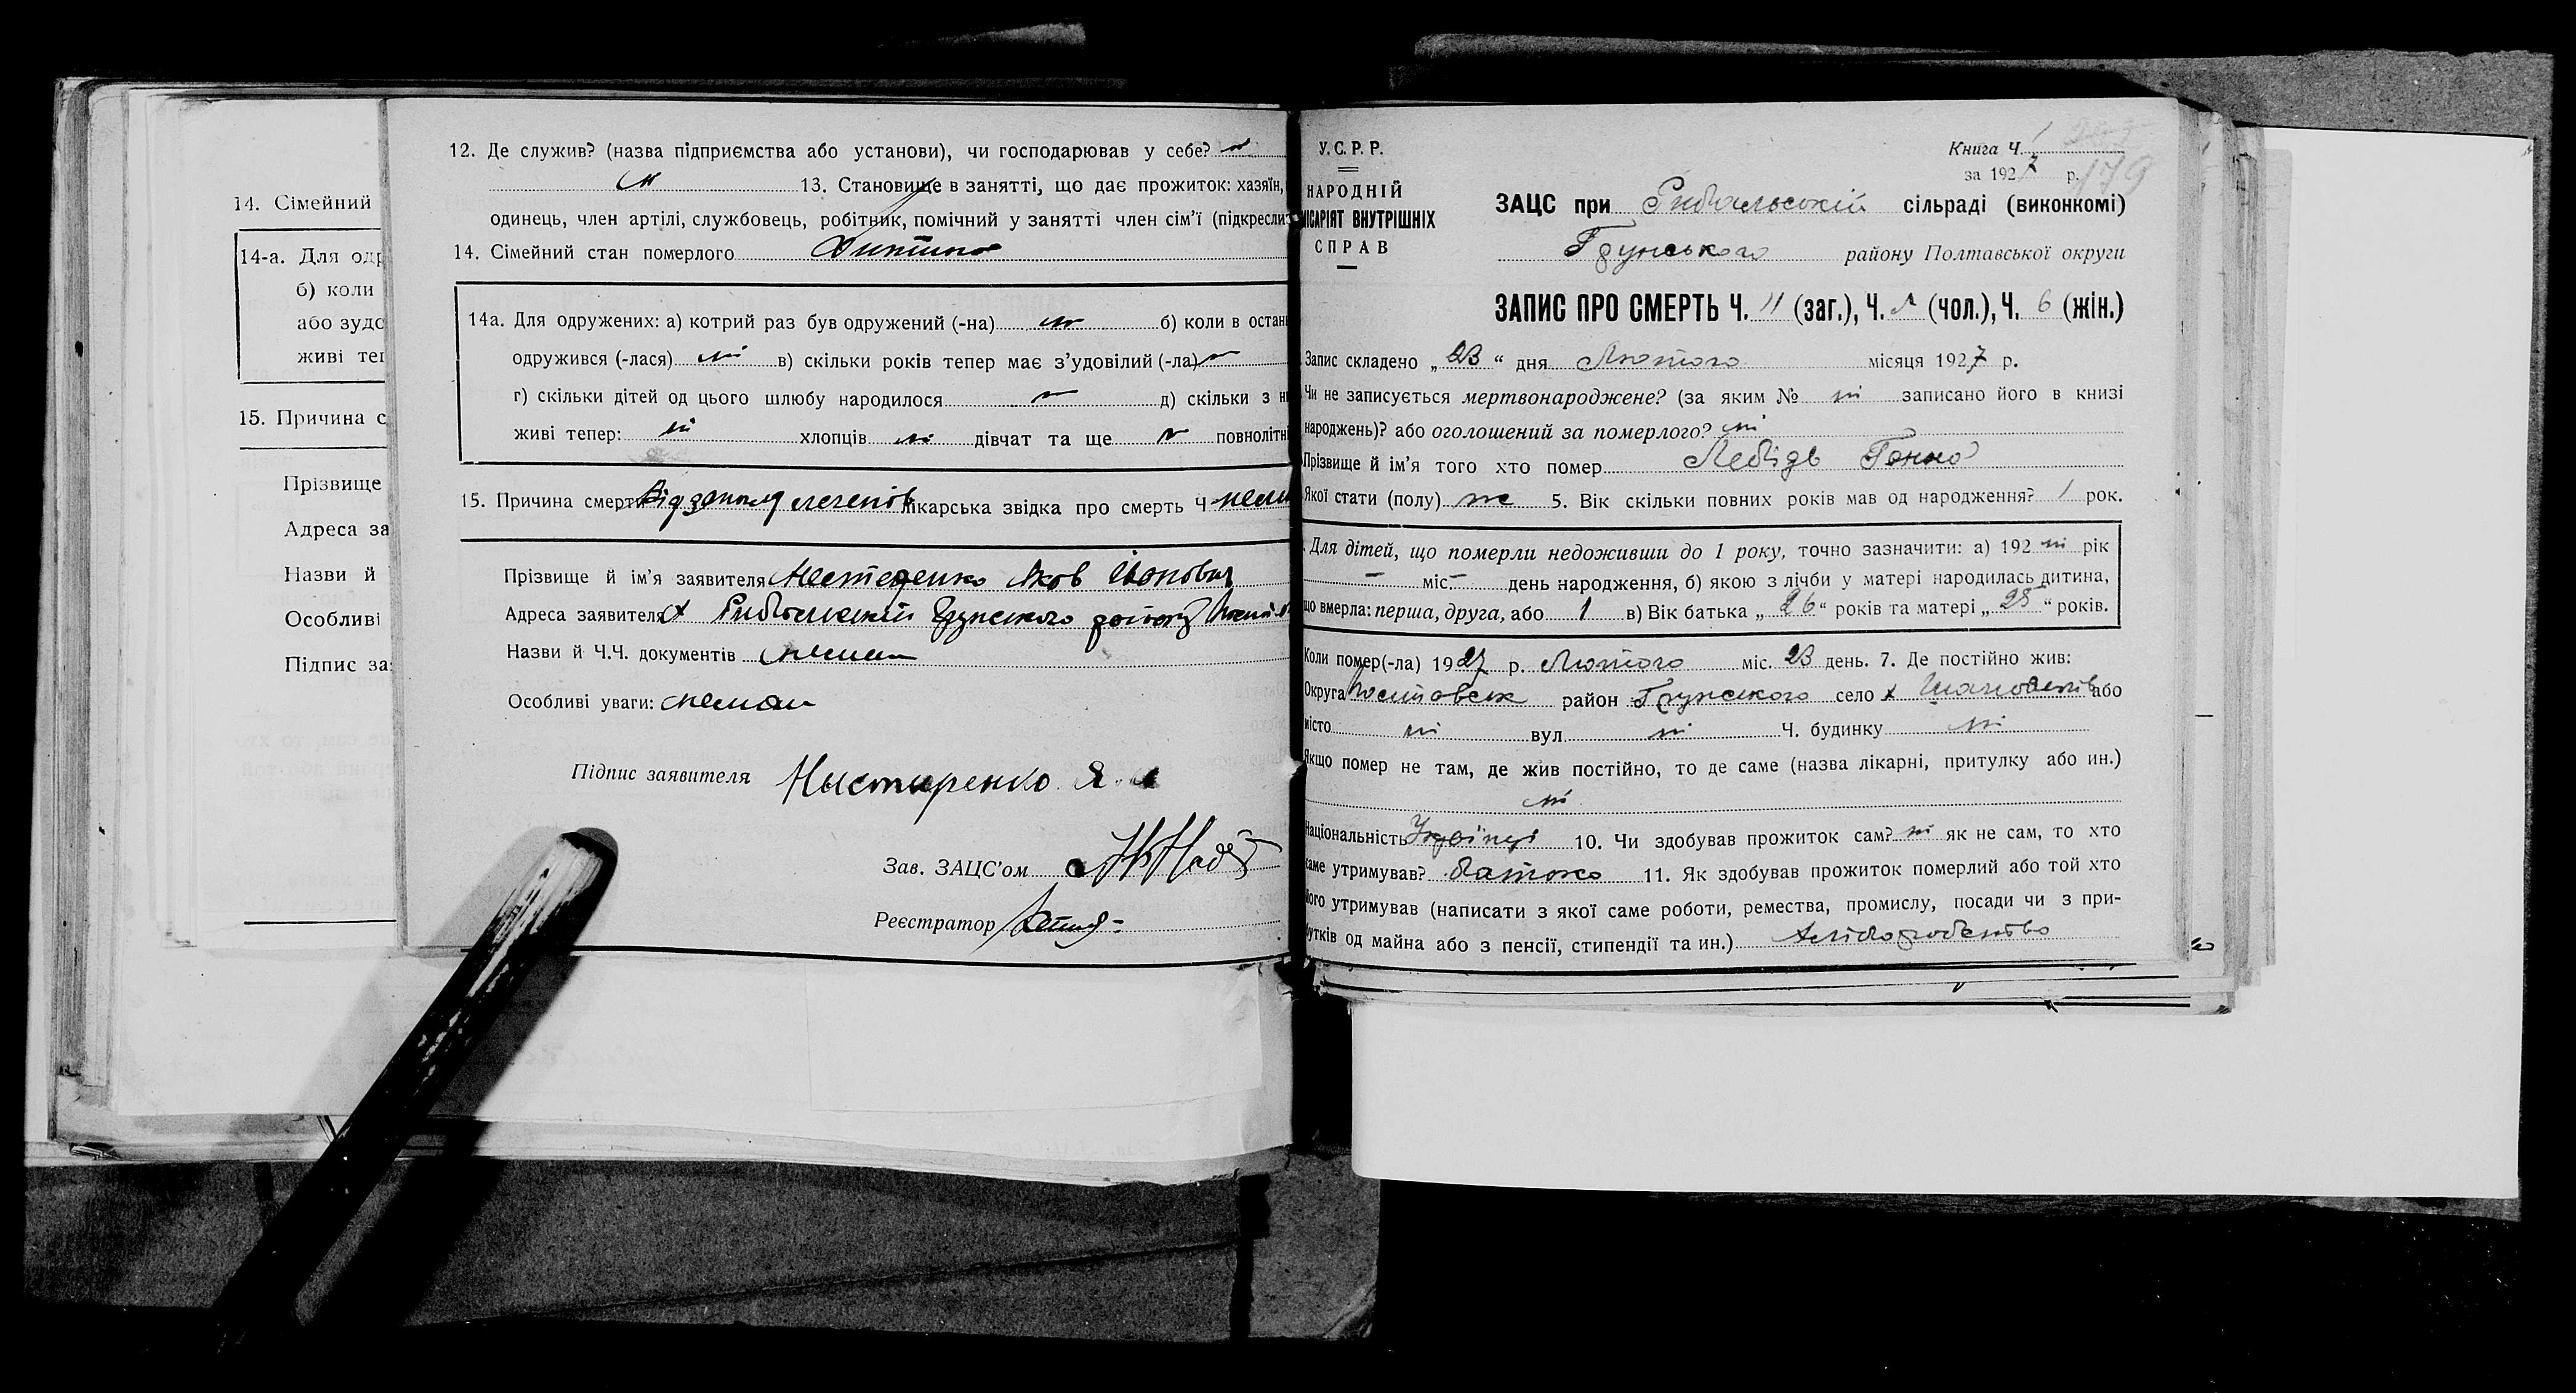 14. Сімейний
14-а. Для одр
б) коли
або зудо
живі теп
15. Причина с
Прізвище
Адреса за
Назви й
Особливі
Підпис за
12. Де служив? (назва підприємства або установи), чи господарював у себе?
13. Становище в занятті, що дає прожиток: хазяїн,
одинець, член артілі, службовець, робітник, помічний у занятті член сім'ї (підкресли
14. Сімейний стан померлого Дитина
14а. Для одружених: а) котрий раз був одружений (-на) б) коли в остан
одружився (-лася) ні в) скільки років тепер має з'удовілий (-ла)
г) скільки дітей од цього шлюбу народилося д) скільки з н
живі тепер: ні хлопців ні дівчат та ще повнолітні
15. Причина смерти Від лікарська звідка про смерть Ч
Прізвище й ім'я заявителя Нестеренко Яков
Адреса заявителя х
Назви й Ч.Ч. документів немає
Особливі уваги: немає
Підпис заявителя Ныстиренко Я
Зав. ЗАЦС'ом
Реєстратор
У.С.Р.Р.
НАРОДНІЙ
МІСАРІЯТ ВНУТРІШНІХ
СПРАВ
Книга Ч. 1
за 1927 р. 179
ЗАЦС при Рибальській сільраді (виконкомі)
Грунського району Полтавської округи
ЗАПИС ПРО СМЕРТЬ Ч. 11 (заг.), Ч. (чол.), Ч. 6 (жін.)
Запис складено „23“ дня Лютого місяця 1927 р.
Чи не записується мертвонароджене? (за яким № ні записано його в книзі
народжень)? або оголошений за померлого? ні
Прізвище й ім'я того хто помер Лебідь Ганна
Якої стати (полу) ж 5. Вік скільки повних років мав од народження? 1 рок.
Для дітей, що померли недоживши до 1 року, точно зазначити: а) 192 ні рік
— міс — день народження, б) якою з лічби у матері народилась дитина,
що вмерла: перша, друга, або 1 в) Вік батька „26“ років та матері „25“ років.
Коли помер(-ла) 1927 р. Лютого міс. 23 день. 7. Де постійно жив:
Округа район Грунського село х або
місто ні вул ні Ч. будинку ні
Якщо помер не там, де жив постійно, то де саме (назва лікарні, притулку або ин.)
ні
Національність 10. Чи здобував прожиток сам? ні як не сам, то хто
саме утримував? батько 11. Як здобував прожиток померлий або той хто
його утримував (написати з якої саме роботи, ремества, промислу, посади чи з при-
бутків од майна або з пенсії, стипендії та ин.) хліборобство